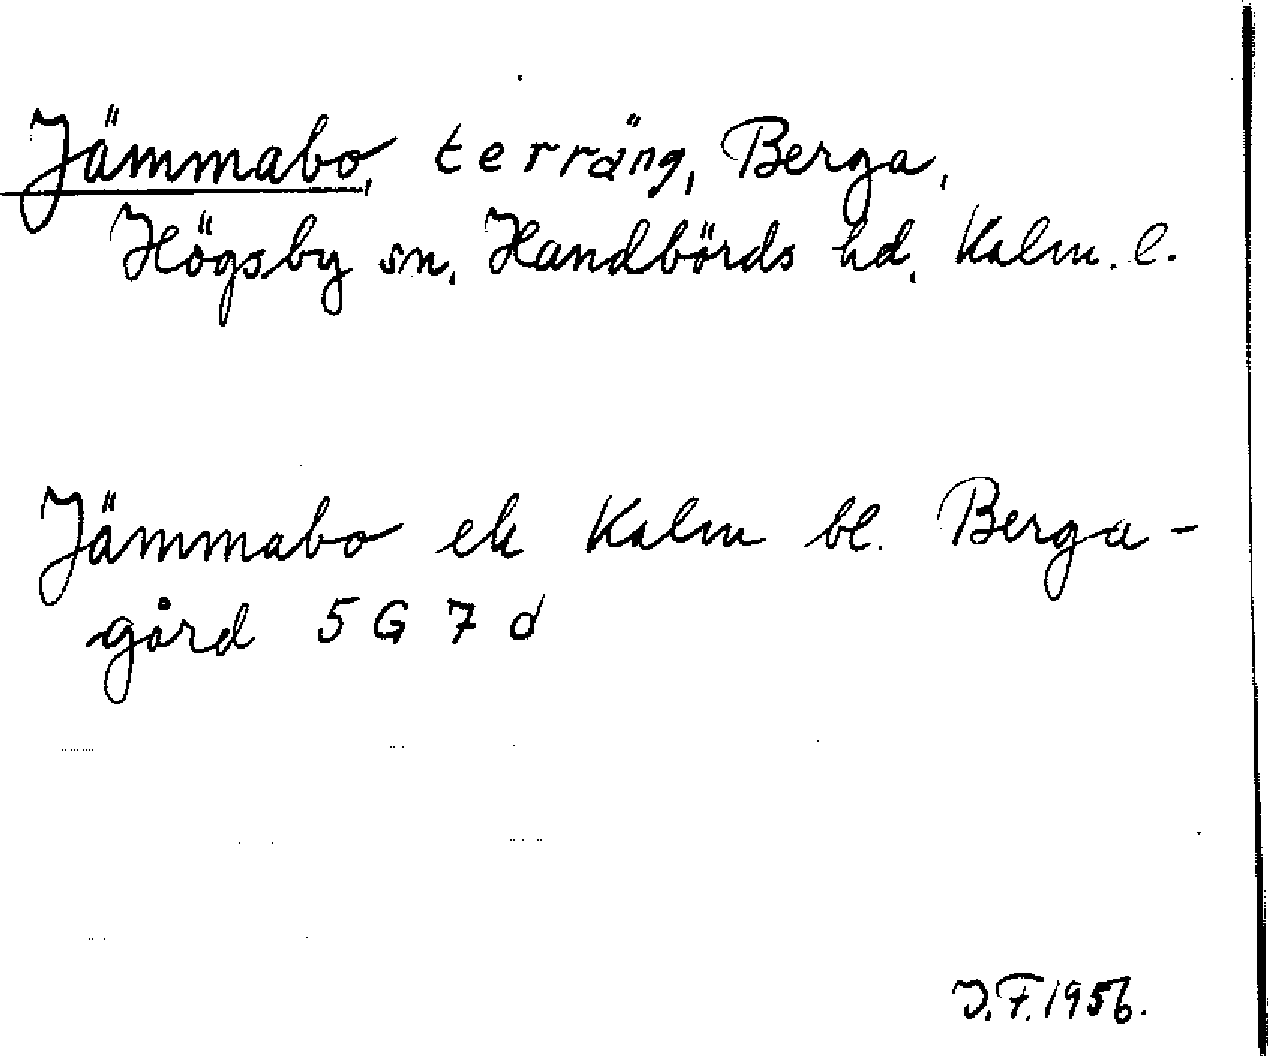 Jämmabo, terräng, Berga,
Högsby sn, Handbörds hd, Kalm. l.
Jämmabo ek Kalm bl. Berga-
gård 5 G 7 d
J.F. 1956.